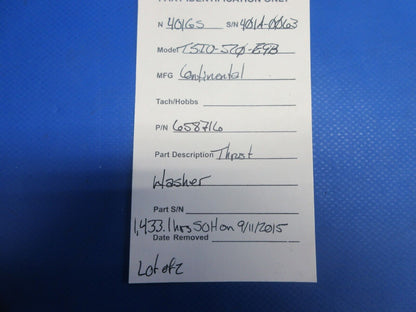 PART IDENTIFICATION ONLY
N 401GS S/N 401A-0063
Model TSIO-520-E9B
MFG Continental
Tach/Hobbs
P/N 658716
Part Description Thrust
Washer
Part S/N
1,433.1 hrs SOH on 9/11/2015
Date Removed
Lot of 2